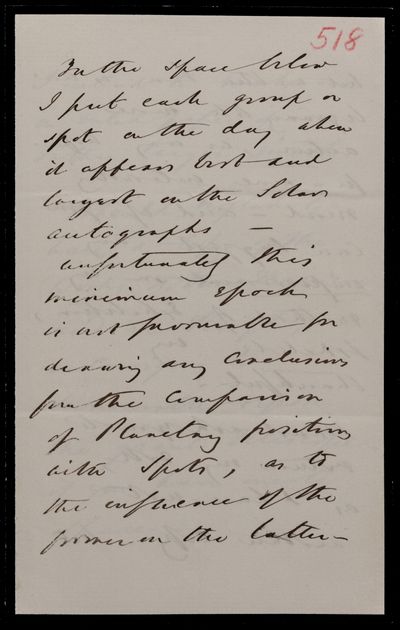 518
In the space below
I put each group or
spot on the day when
it appears best and
largest on the Solar
autographs —
unfortunately this
minimum Epoch
is not favourable for
drawing any conclusions
from the Comparison
of Planetary positions
with Spots, as to
the influence of the
former on the latter —